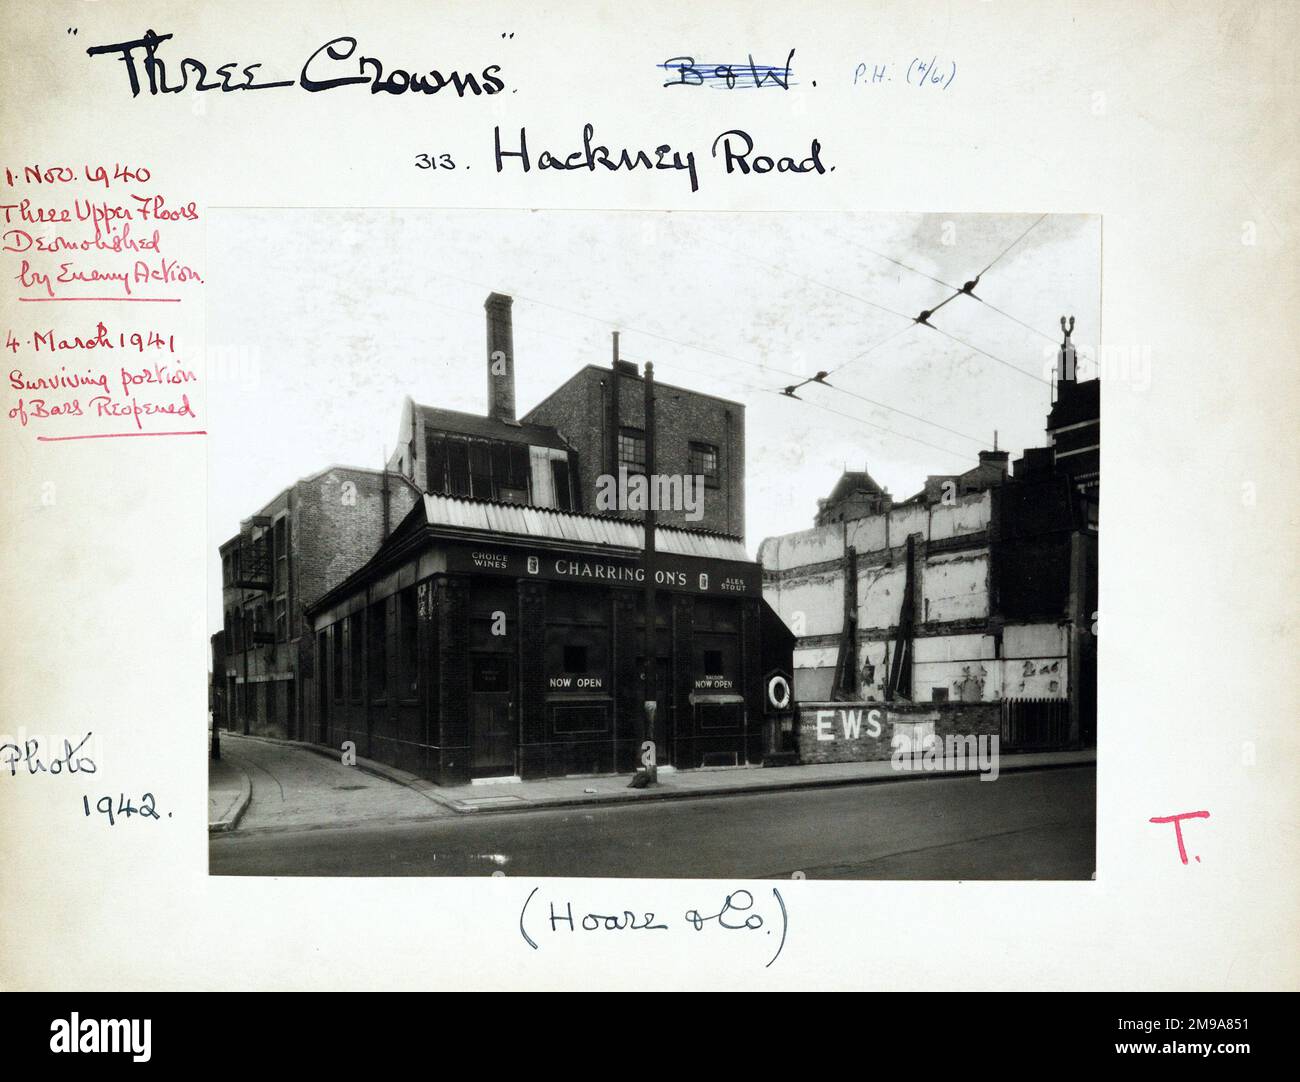 "Three Crowns".
B & W. P.H. (4/61)
313. Hackney Road.
1. Nov. 1940
Three Upper Floors
Demolished
by Enemy Action.
4. March 1941
Surviving portion
of Bars Reopened
CHOICE WINES
CHARRINGTON'S
ALES STOUT
NOW OPEN
SALOON
NOW OPEN
EWS
Photo
1942.
T.
(Hoare & Co.)
alamy
Image ID: 2M9A851
www.alamy.com